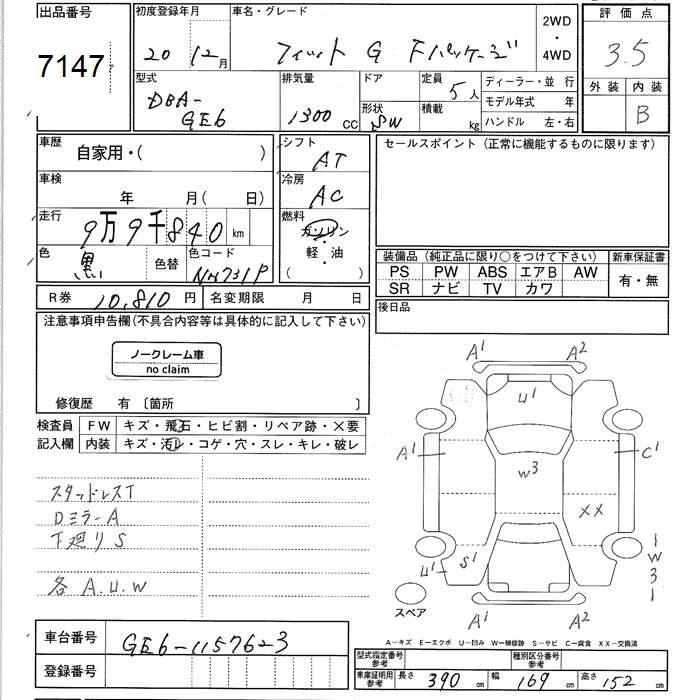 出品番号
7147
初度登録年月
20 年 12 月
車名・グレード
フィット G Fパッケージ
2WD
・
4WD
評価点
3.5
外装 内装
B
型式
DBA-
GE6
排気量
1300 CC
ドア
形状
SW
定員
5人
積載
kg
ディーラー・並行
モデル年式 年
ハンドル 左・右
車歴
自家用・( )
車検
年 月( 日)
走行
9万9千840 km
色
黒
色替
色コード
NH731P
シフト
AT
冷房
AC
燃料
ガソリン
・
軽・油
( )
セールスポイント (正常に機能するものに限ります)
装備品 (純正品に限り○をつけて下さい)
新車保証書
PS PW ABS エアB AW
有・無
SR ナビ TV カワ
後日品
R券 10,810 円
名変期限 月 日
注意事項申告欄(不具合内容等は具体的に記入して下さい)
ノークレーム車
no claim
修復歴 有 〔箇所 〕
検査員
記入欄
FW キズ・飛石・ヒビ割・リペア跡・×要
内装 キズ・汚レ・コゲ・穴・スレ・キレ・破レ
スタッドレスT
DミラーA
下廻りS
各 A.U.W
A1 A2
U1
A1
C1
W3
XX
S1
U1
W
3
1
スペア
A1 A2
A-キズ E-エクボ U-凹み W-補修跡 S-サビ C-腐食 XX-交換済
車台番号
GE6-1157623
登録番号
型式指定番号
参考
種別区分番号
参考
車庫証明用
参考
長さ 390 cm 幅 169 cm 高さ 152 cm